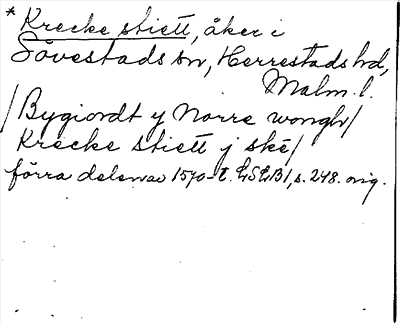 * Krecke stiett, åker i
Sövestads sn, Herrestads hd,
Malm. l.
/Bygiordt y Norre wongh/
Krecke stiett j ske/
förra delen av 1570-t. LSLB1, s. 248. orig.